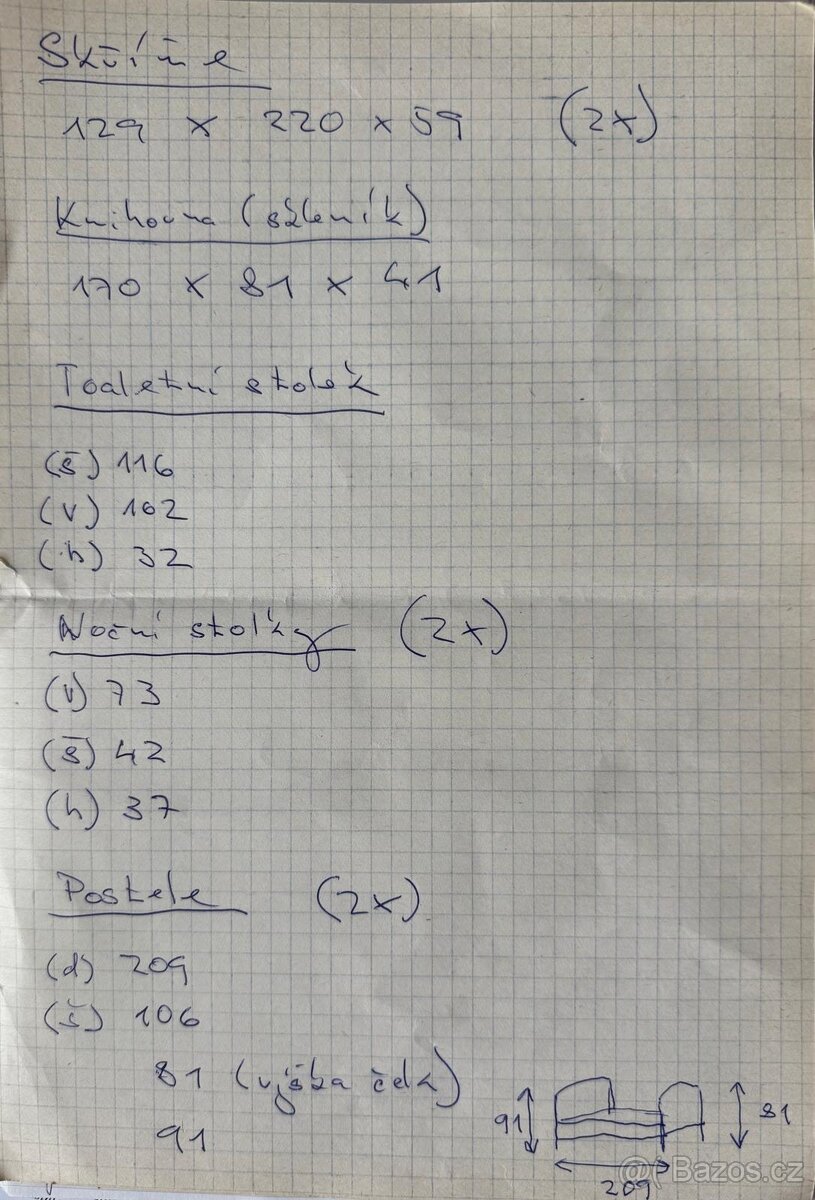 Skříně
129 x 220 x 59 (2x)
Knihovna (skleník)
170 x 81 x 41
Toaletní stolek
(š) 116
(v) 162
(h) 32
Noční stolky (2x)
(v) 73
(š) 42
(h) 37
Postele (2x)
(d) 209
(š) 106
81 (výška čela)
91
91 81
209
@ Bazos.cz